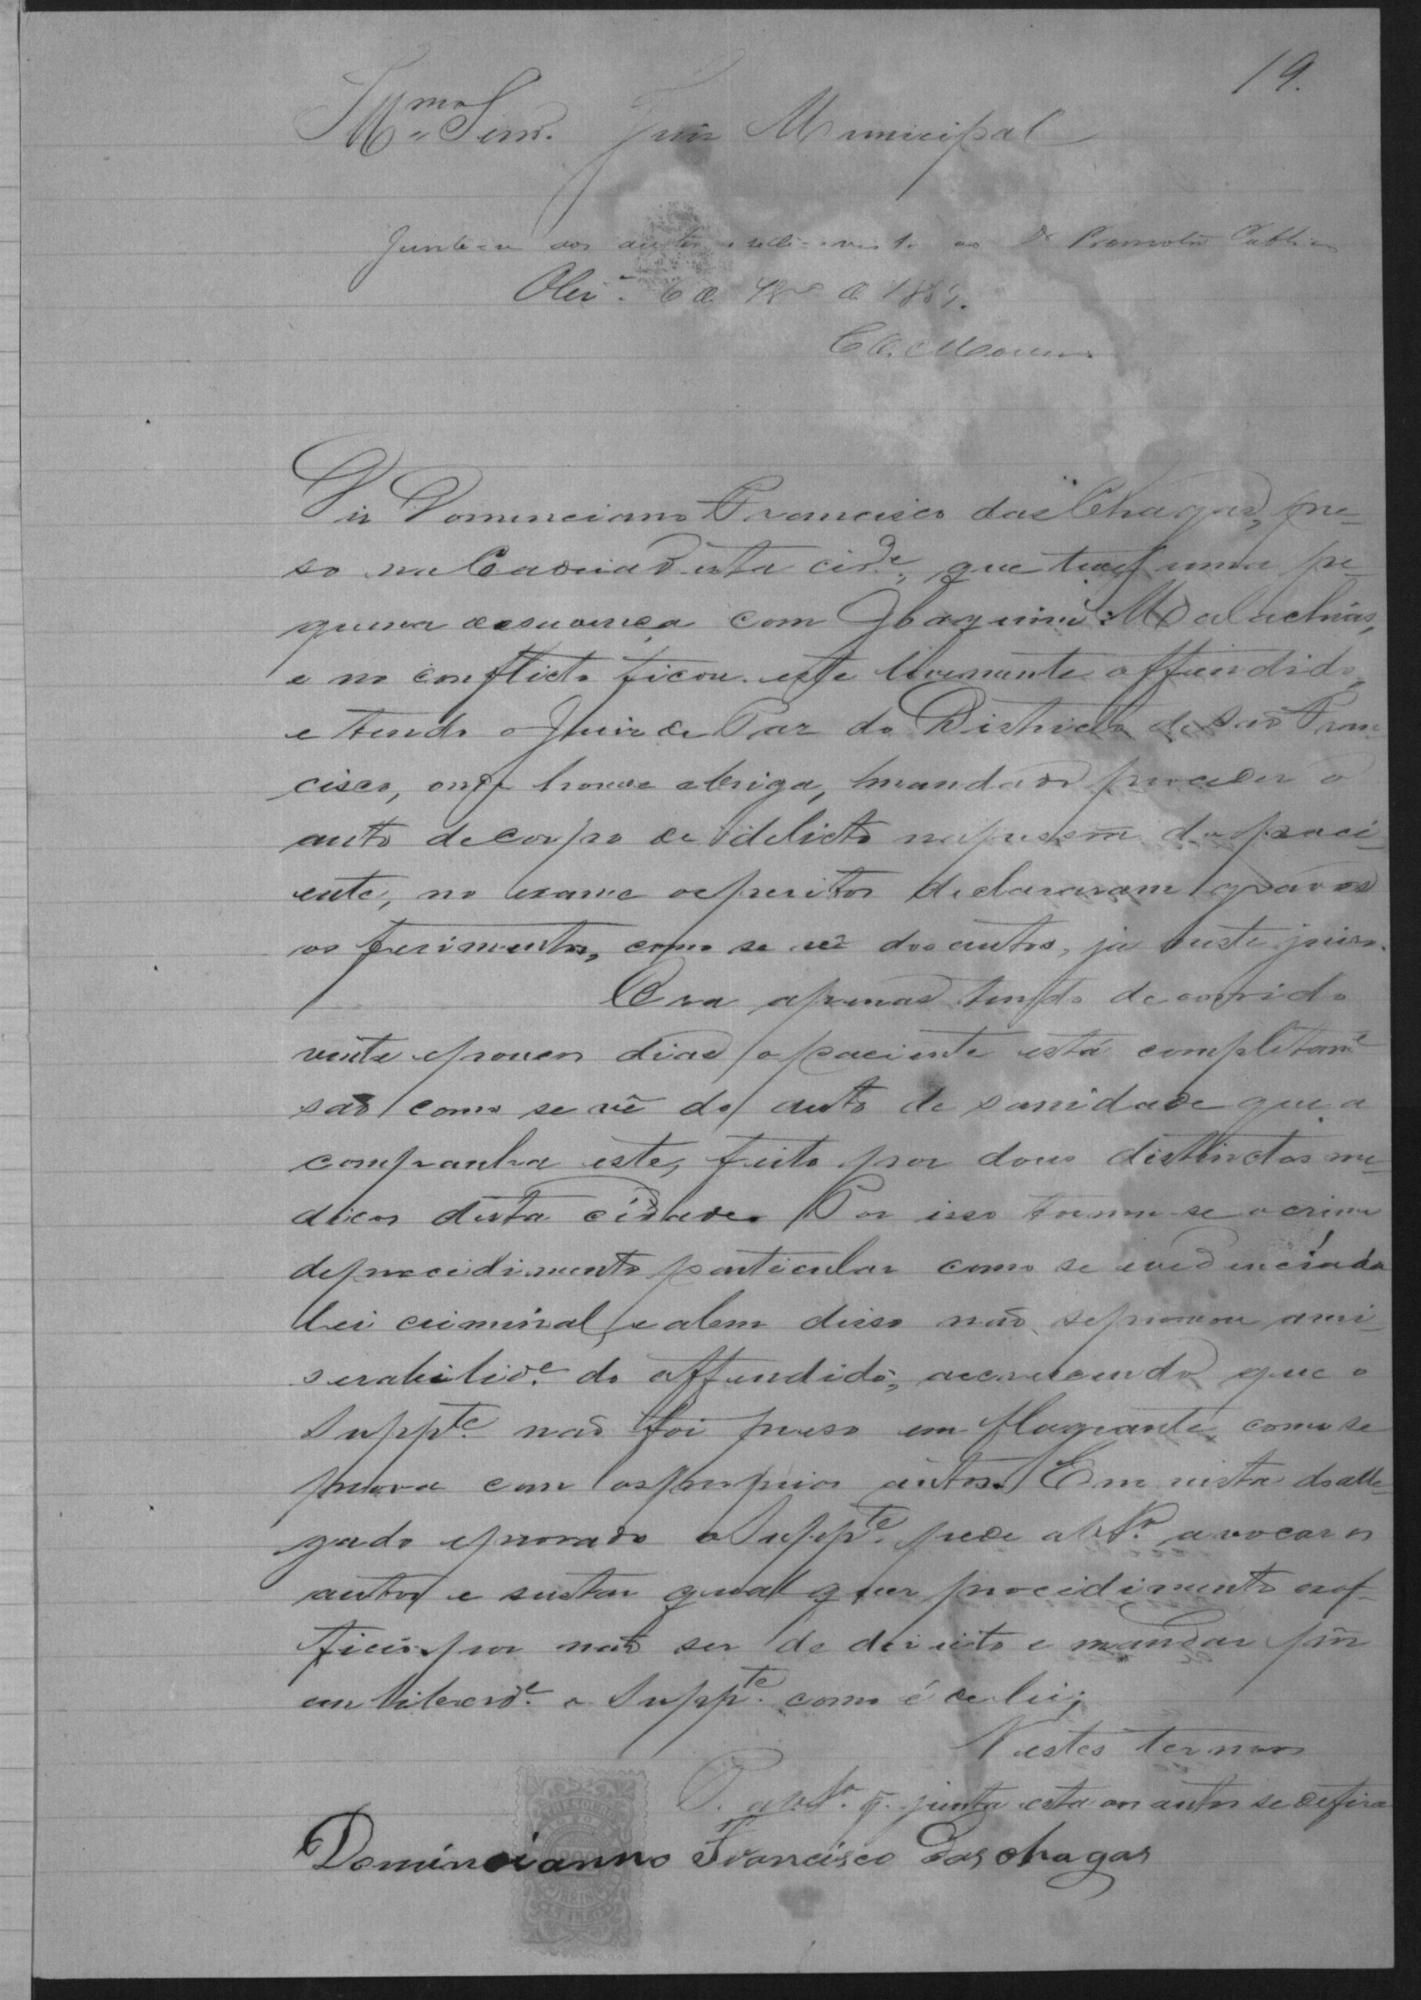 19.
Illmo Senr. Juiz Municipal
Junte-se aos autos e dê-se vista ao Dr Promotor Publico
Olivª. 6 de de 188
Diz Dominciano Francisco das Chagas, pre-
so na Cadeia desta cide., que teve uma pe-
quena desavença com Joaquim Malachias,
e no conflicto ficou este levemente offendido,
e tendo o Juiz de Paz do Districto de São Fran-
cisco, onde houve a briga, mandado proceder o
auto de corpo de delicto na pessôa do paci-
ente, no exame os peritos declararam graves
os ferimentos, como se vê dos autos, já neste juizo.
Ora apenas tendo decorrido
vinte e poucos dias o paciente está completame
são como se vê do auto de sanidade que a
companha este, feito por dous distinctos me-
dicos desta cidade. Por isso torna-se o crime
de procedimento particular como se evidencía da
lei criminal, e alem disso não se provou a mi-
serabilide. do offendido, accrescendo que o
Suppte. não foi preso em flagrante, como se
prova com os proprios autos. Em vista do alle-
gado e provado o Suppte. pede a VSª. avocar os
autos e sustar qualquer procedimento exof-
ficio por não ser de direito e mandar pôr
em liberde. o Suppte. como é de lei;
Nestes termos
P. a VSª. q. junta esta aos autos se defira
Domincianno Francisco Das chagas